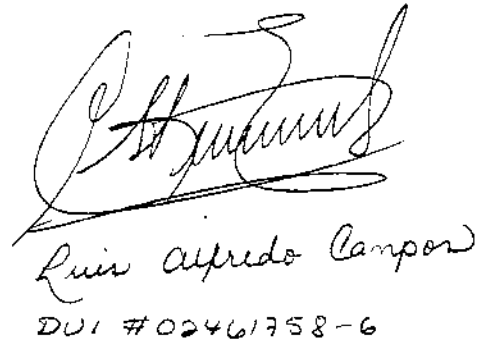 Luis Alfredo Campos
DUI #02461758-6